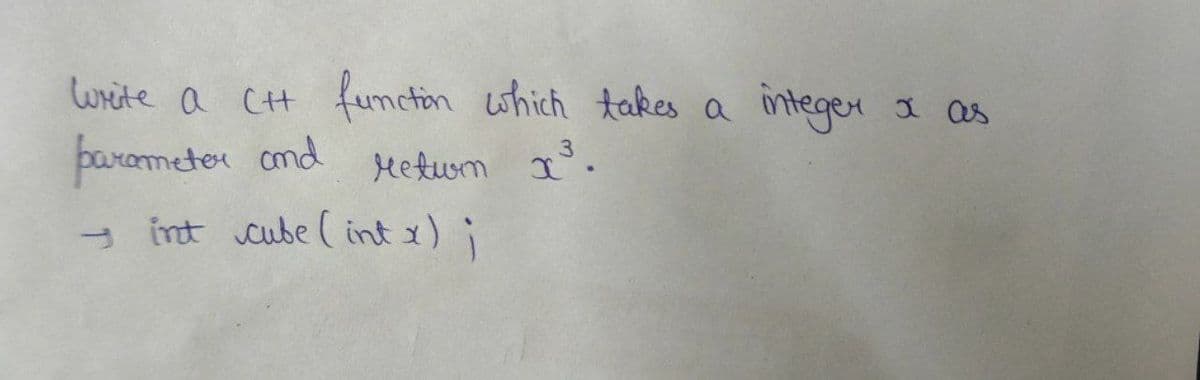 Write a C++ function which takes a integer x as
parameter and return x³.
→ int cube ( int x ) ;